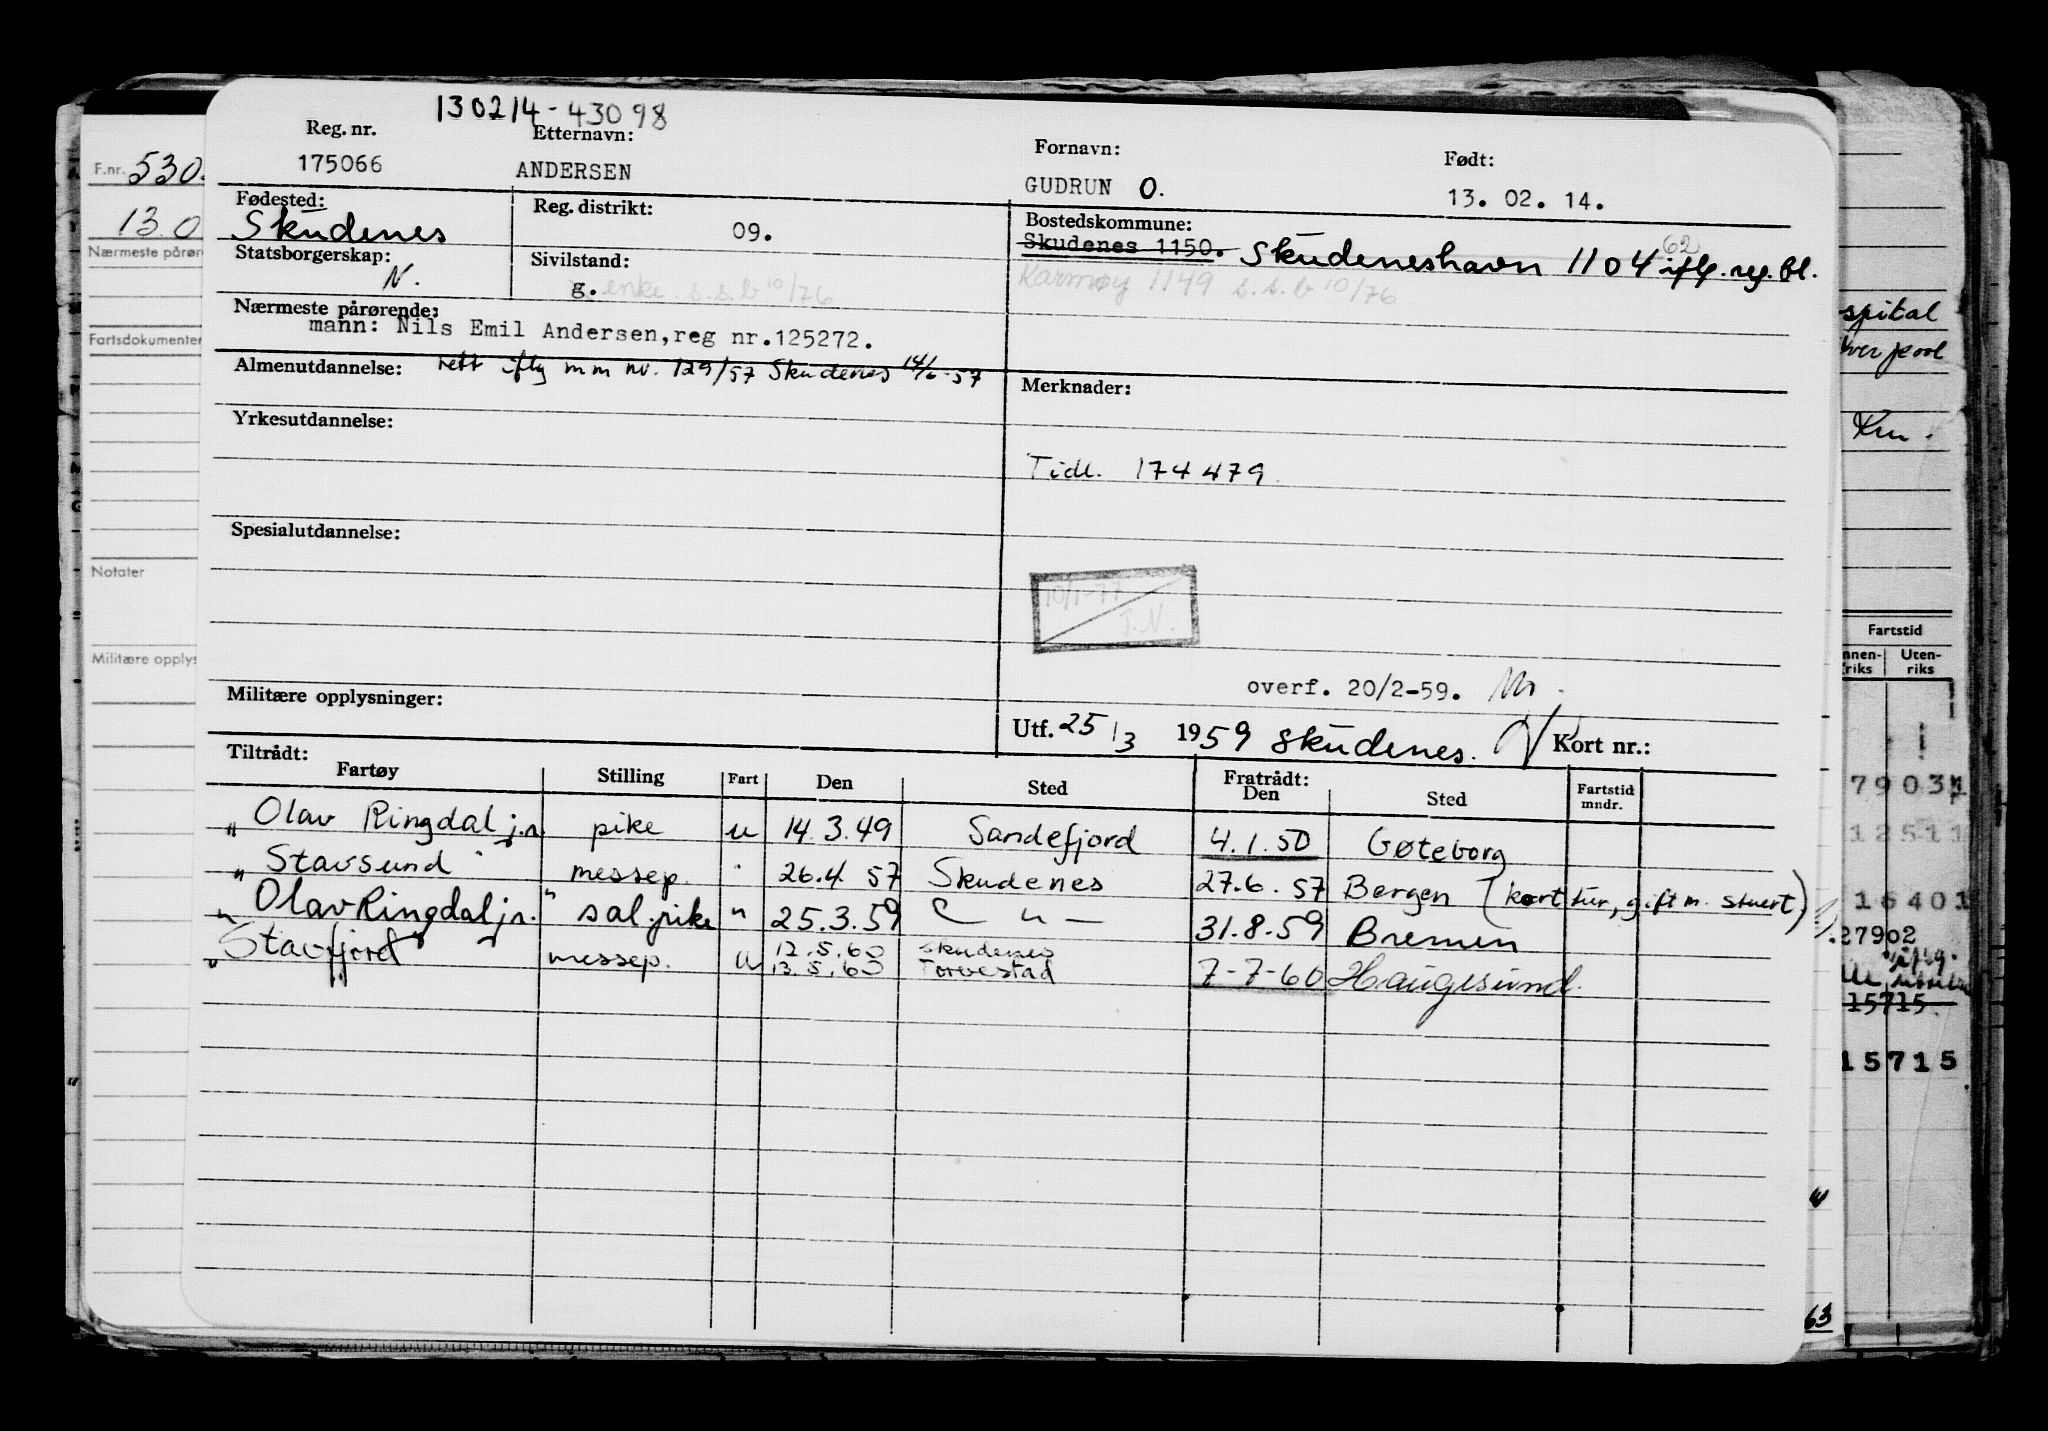 130214-43098
Reg. nr. Etternavn: Fornavn: Født:
175066 ANDERSEN GUDRUN O. 13. 02. 14.
Fødested: Reg. distrikt: Bostedskommune:
Skudenes 09. Skudenes 1150. Skudeneshavn 1104 62 iflg. reg. bl.
Statsborgerskap: Sivilstand:
N. g. enke s.s.b 10/76 Karmøy 1149 s.s.b 10/76
Nærmeste pårørende:
mann: Nils Emil Andersen, reg nr.125272.
Almenutdannelse: rett iflg m m nr. 129/57 Skudenes 14/6-57 Merknader:
Yrkesutdannelse:
Tidl. 174479.
Spesialutdannelse:
10/1-77
T.N.
overf. 20/2-59.
Militære opplysninger:
Utf. 25/3 1959 Skudenes. Kort nr.:
Tiltrådt: Fratrådt:
Fartøy Stilling Fart Den Sted Den Sted Fartstid mndr.
" Olav Ringdal jr. pike u 14.3.49 Sandefjord 4.1.50 Gøteborg
" Stavsund messep. " 26.4.57 Skudenes 27.6.57 Bergen (kort tur, gift m. stuert)
" Olav Ringdal jr. " sal.pike " 25.3.59 — " — 31.8.59 Bremen
" Stavfjord messep. u 12.5.60 Skudenes
13.5.60 Torvestad 7-7-60 Haugesund.
F.nr. 530
13.0
Nærmeste pårør
Fartsdokumenter
Notater
Militære opplys
spital
verpool
Km.
Fartstid
nnen-riks Uten-riks
7903
12511
16401
27902
iflg.
15715
15715
63